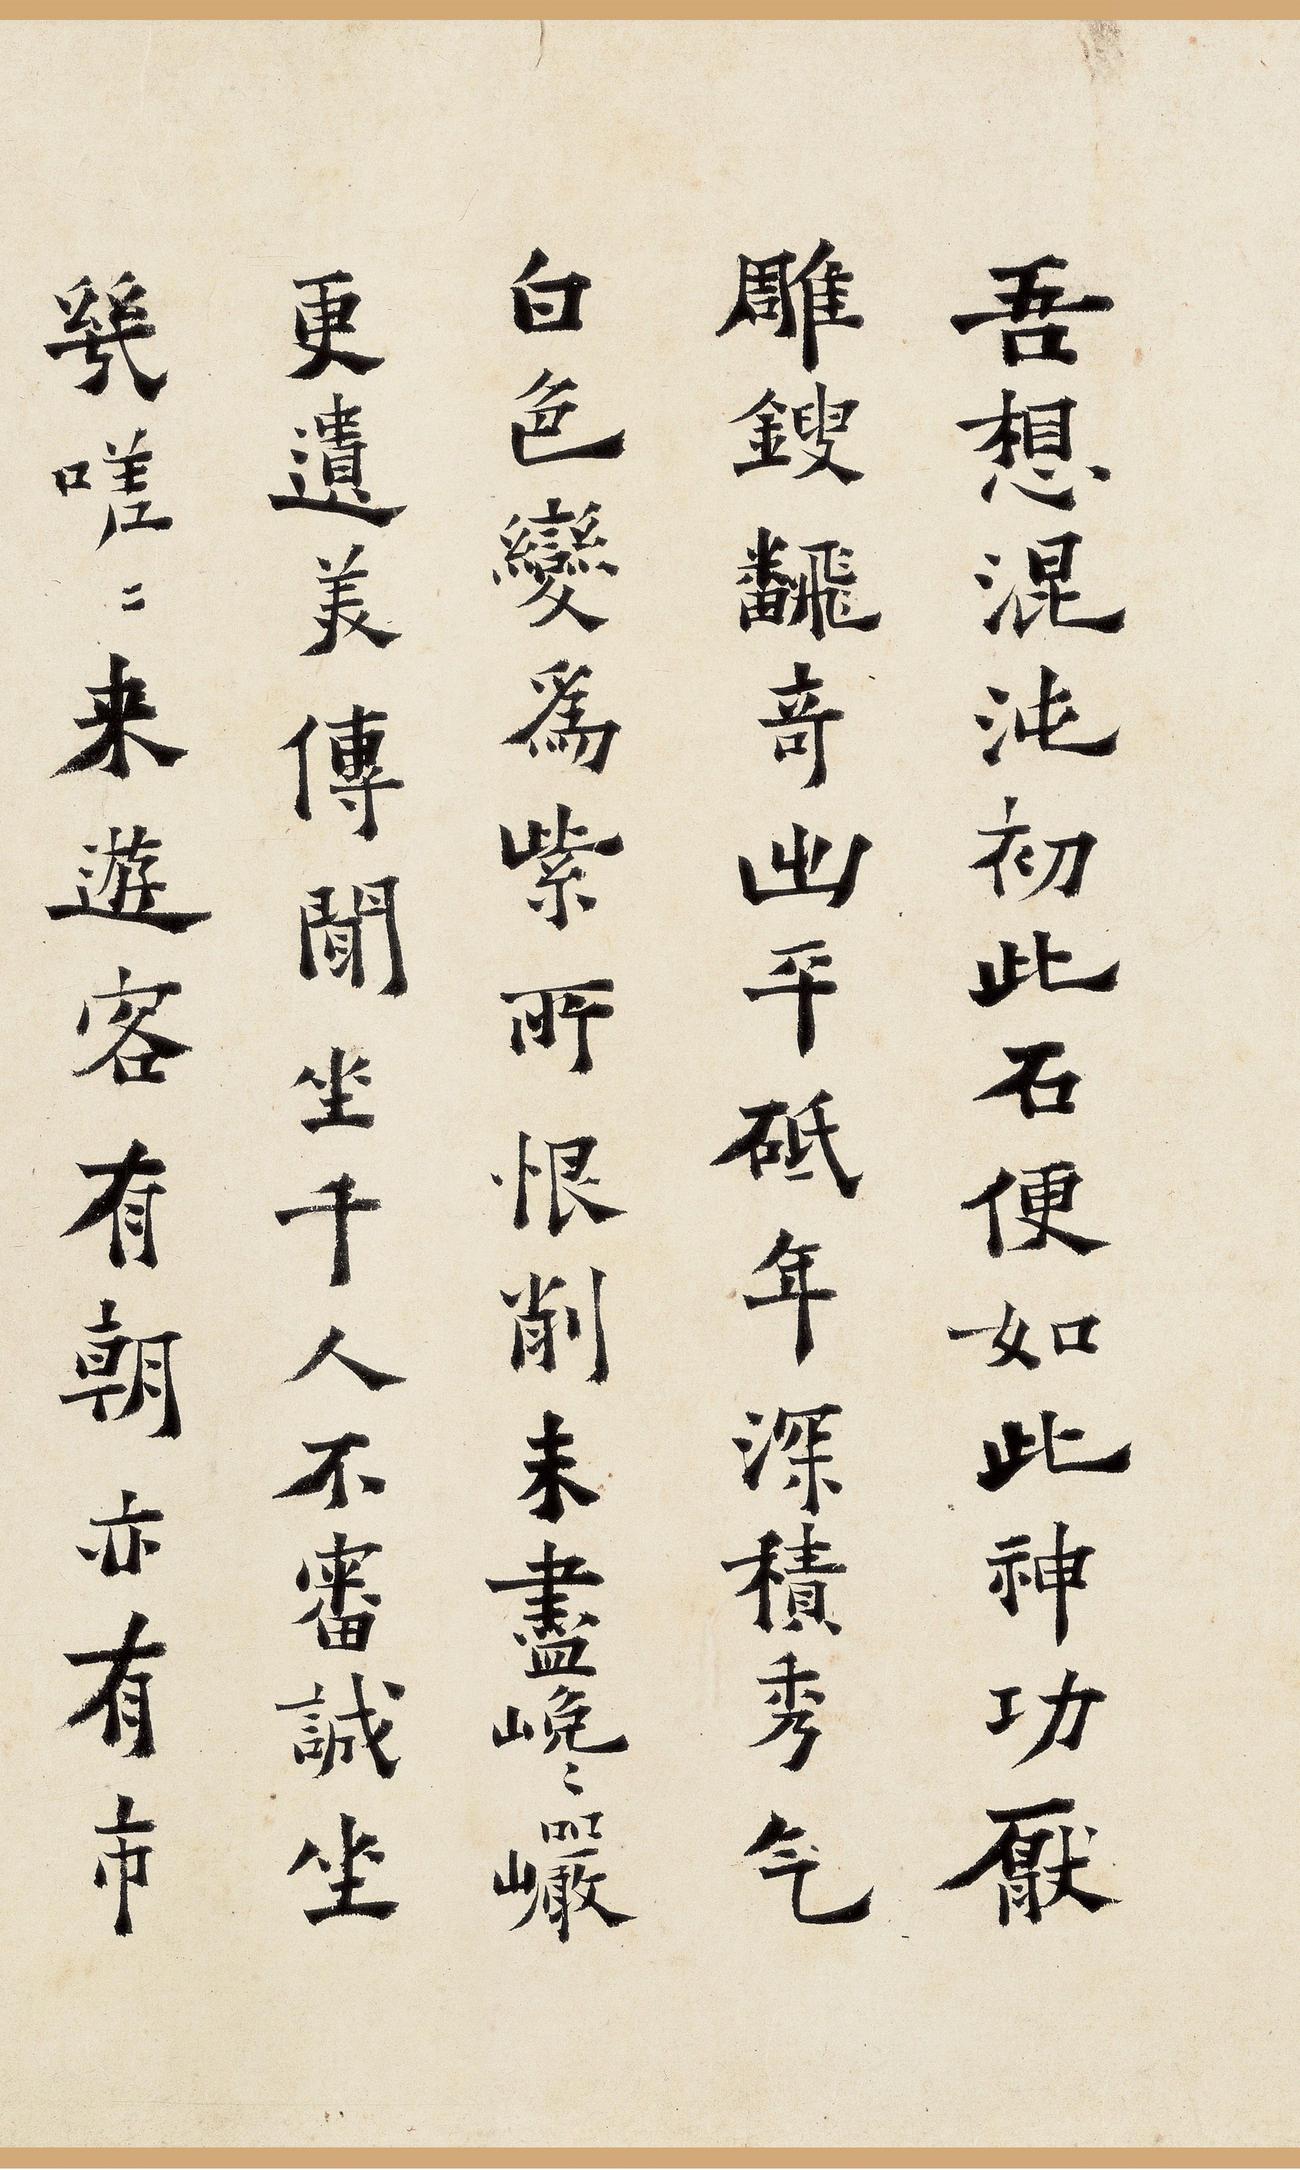 吾想混沌初此石便如此神功厭
雕鎪飜奇出平砥年深積秀气
白色變爲紫所恨削未盡巉〻巗
更遺美傳聞坐千人不審誠坐
幾嗟〻来遊客有朝亦有市